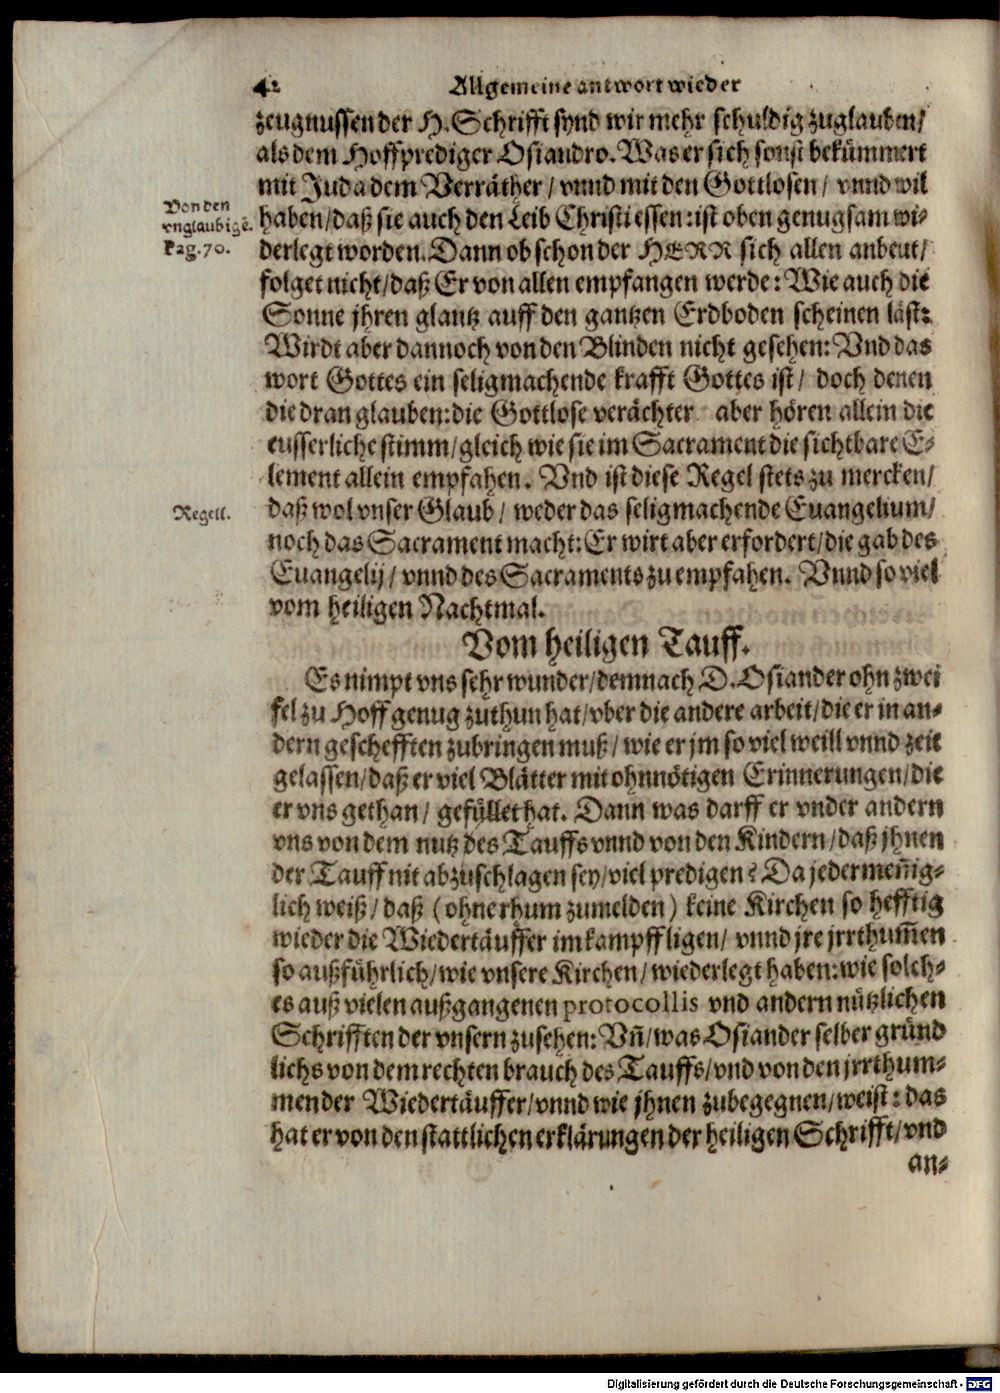 42 Allgemeine antwort wieder
zeugnussen der H. Schrifft synd wir mehr schuldig zuglauben/
als dem Hoffprediger Osiandro. Was er sich sonst bekümmert
mit Juda dem Verräther / vnnd mit den Gottlosen / vnnd wil
Von den
vnglaubigē.
Pag. 70.
haben/daß sie auch den Leib Christi essen: ist oben genugsam wi-
derlegt worden. Dann ob schon der HERR sich allen anbeut/
folget nicht/daß Er von allen empfangen werde: Wie auch die
Sonne jhren glantz auff den gantzen Erdboden scheinen läst:
Wirdt aber dannoch von den Blinden nicht gesehen: Vnd das
wort Gottes ein seligmachende krafft Gottes ist/ doch denen
die dran glauben: die Gottlose verächter aber hören allein die
eusserliche stimm/gleich wie sie im Sacrament die sichtbare E-
lement allein empfahen. Vnd ist diese Regel stets zu mercken/
Regell.
daß wol vnser Glaub / weder das seligmachende Euangelium/
noch das Sacrament macht: Er wirt aber erfordert/die gab des
Euangelij / vnnd des Sacraments zu empfahen. Vnnd so viel
vom heiligen Nachtmal.
Vom heiligen Tauff.
Es nimpt vns sehr wunder/demnach D. Osiander ohn zwei
fel zu Hoff genug zuthun hat/vber die andere arbeit/die er in an-
dern geschefften zubringen muß/ wie er jm so viel weill vnnd zeit
gelassen/daß er viel Blätter mit ohnnötigen Erinnerungen/die
er vns gethan/ gefüllet hat. Dann was darff er vnder andern
vns von dem nutz des Tauffs vnnd von den Kindern/daß jhnen
der Tauff nit abzuschlagen sey/viel predigen? Da jedermeñig-
lich weiß/daß (ohne rhum zumelden) keine Kirchen so hefftig
wieder die Wiedertäuffer im kampff ligen/ vnnd jre jrrthum̄en
so außführlich/wie vnsere Kirchen/wiederlegt haben: wie solch-
es auß vielen außgangenen protocollis vnd andern nützlichen
Schrifften der vnsern zusehen: Vñ/was Osiander selber gründ
lichs von dem rechten brauch des Tauffs/vnd von den jrrthum-
men der Wiedertäuffer/vnnd wie jhnen zubegegnen/weist: das
hat er von den stattlichen erklärungen der heiligen Schrifft/vnd
an-
Digitalisierung gefördert durch die Deutsche Forschungsgemeinschaft - DFG